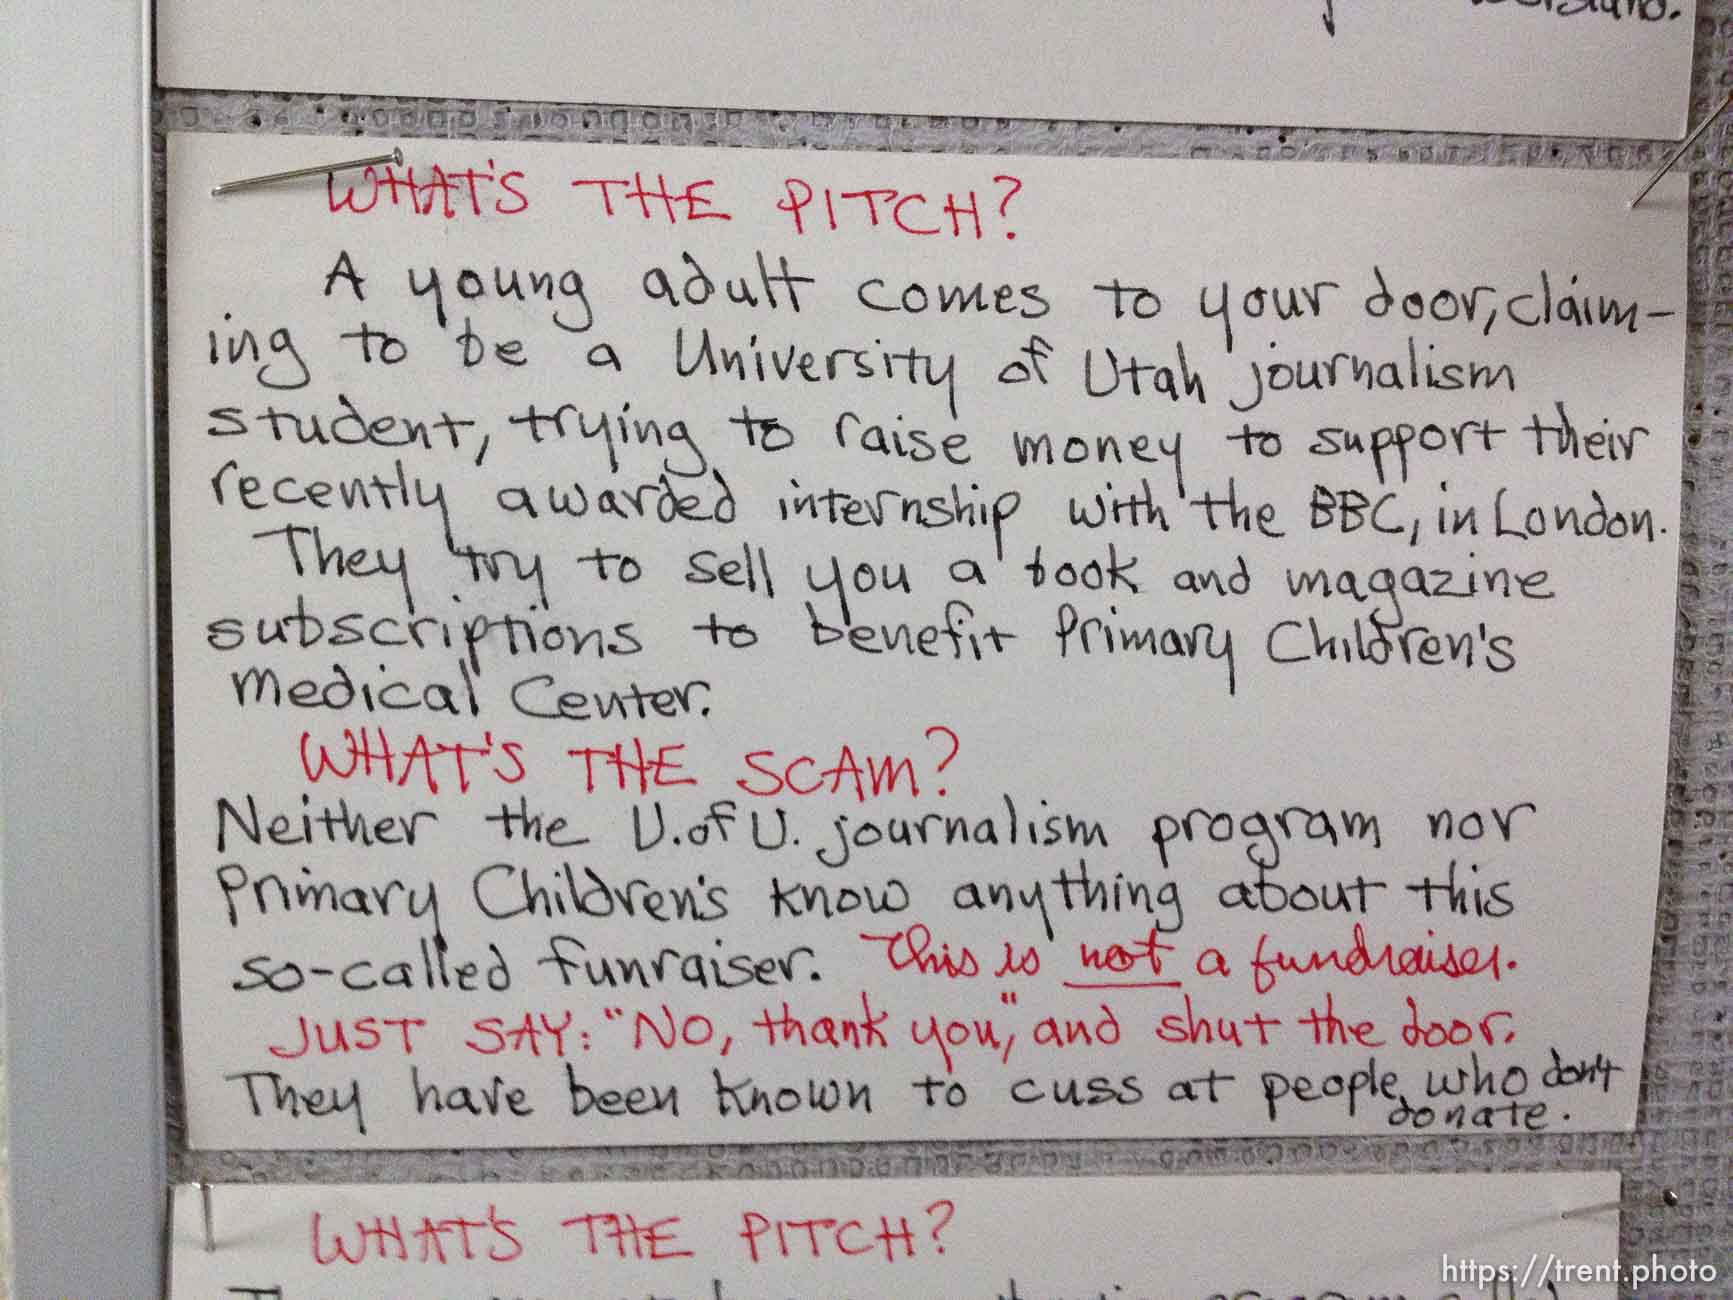 WHAT'S THE PITCH?
A young adult comes to your door, claim-
ing to be a University of Utah journalism
student, trying to raise money to support their
recently awarded internship with the BBC, in London.
They try to sell you a book and magazine
subscriptions to benefit Primary Children's
Medical Center.
WHAT'S THE SCAM?
Neither the U. of U. journalism program nor
Primary Children's know anything about this
so-called funraiser. This is not a fundraiser.
JUST SAY: "NO, thank you," and shut the door.
They have been known to cuss at people who don't
donate.
WHAT'S THE PITCH?
https://trent.photo